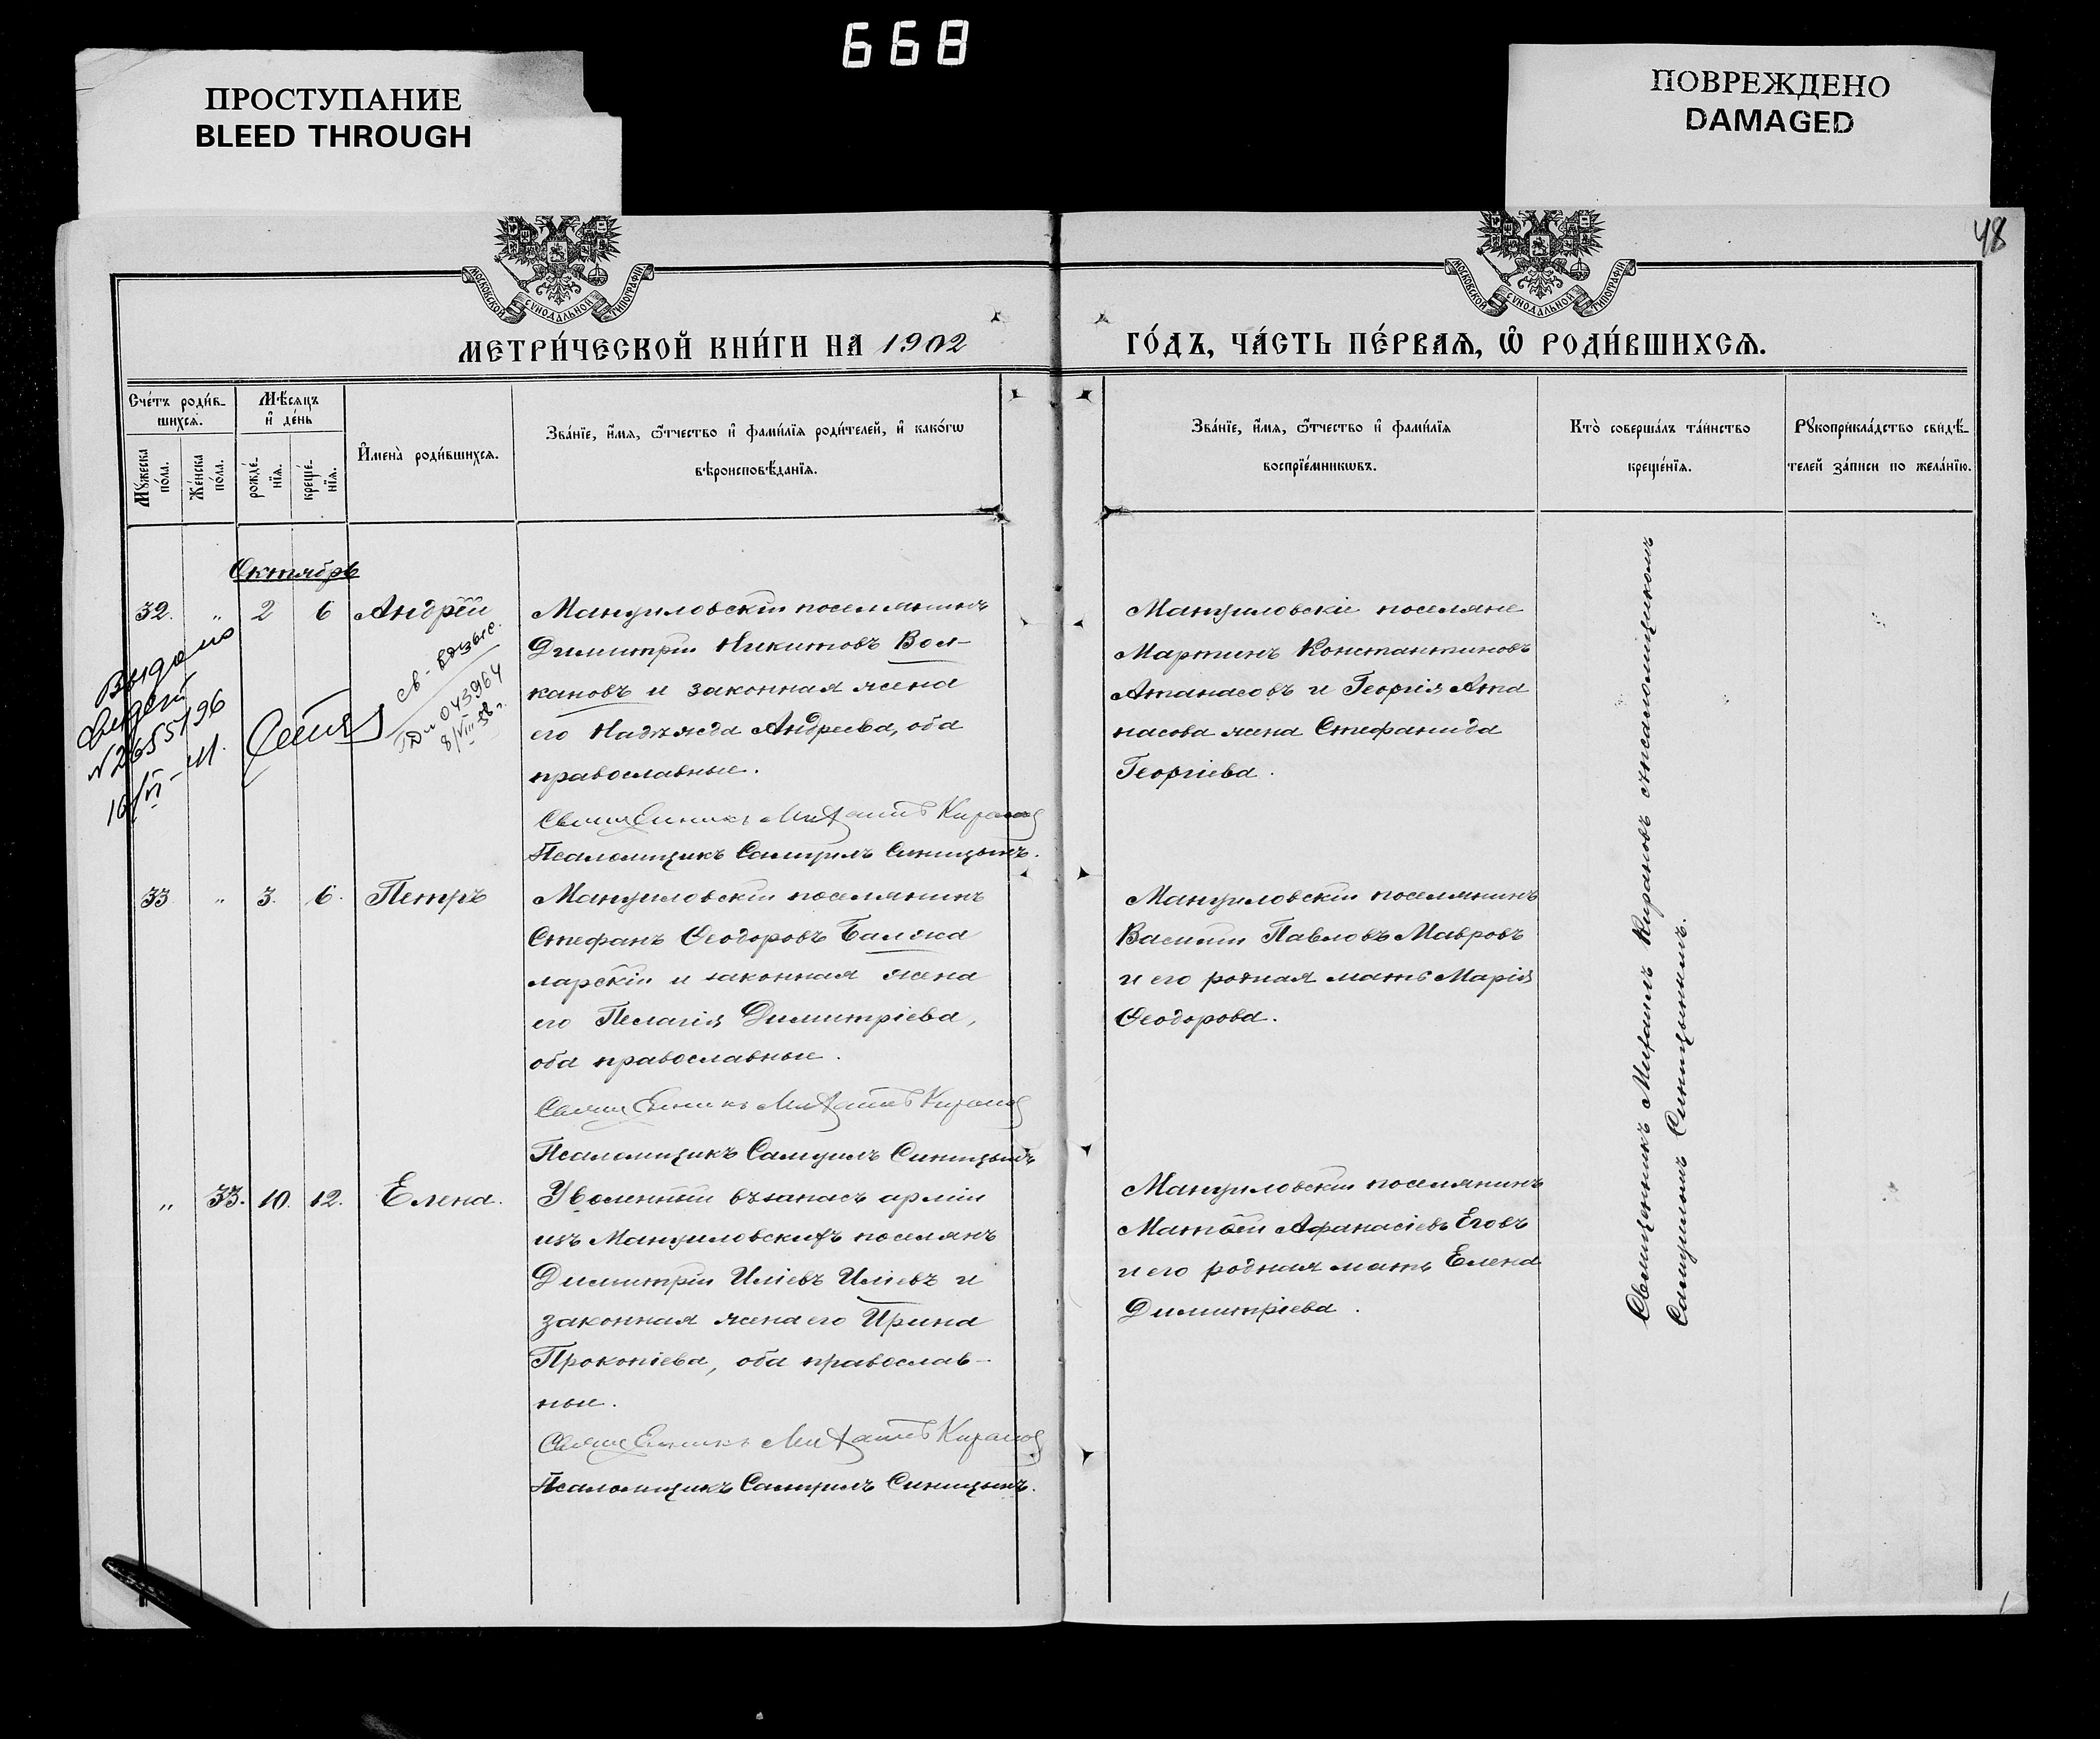 668
ПРОСТУПАНИЕ
BLEED THROUGH
ПОВРЕЖДЕНО
DAMAGED
48
МОСКОВСКОЙ СѴНОДАЛЬНОЙ ТИПОГРАФІИ
МОСКОВСКОЙ СѴНОДАЛЬНОЙ ТИПОГРАФІИ
МЕТРИ́ЧЕСКОЙ КНИ́ГИ НА 1902
ГО́ДЪ, ЧА́СТЬ ПЕ́РВАѦ, Ѡ҆ РОДИ́ВШИХСѦ.
Сче́тъ роди́в-
шихсѧ.
Мѣ́сѧцъ
и҆ де́нь
Мꙋ́жеска
по́ла.
Же́нска
по́ла.
рожде́-
нїѧ.
креще́-
нїѧ.
И҆мена̀ роди́вшихсѧ.
Зва́нїе, и҆́мѧ, ѻ҆́тчество и҆ фами́лїѧ роди́телей, и҆ како́гѡ
вѣроисповѣ́данїѧ.
Зва́нїе, и҆́мѧ, ѻ҆́тчество и҆ фами́лїѧ
воспрїе́мникѡвъ.
Кто̀ соверша́лъ та́инство
креще́нїѧ.
Рꙋкоприкла́дство свидѣ́-
телей за́писи по жела́нїю.
Октябрь
32. " 2 6 Андрей
Мануиловскій поселянинъ
Димитрій Никитовъ Вол-
кановъ и законная жена
его Надежда Андреева, оба
православные.
Священникъ Михаилъ Кирановъ
Псаломщикъ Самуилъ Синицынъ.
Мануиловскіе поселяне
Мартинъ Константиновъ
Атанасовъ и Георгія Ата
насова жена Стефанида
Георгіева.
Выдано
N 2655196
св-
043964
8/VIII-58 г.
33 " 3. 6. Петръ
Мануиловскій поселянинъ
Стефанъ Ѳеодоровъ Балжа
ларскій и законная жена
его Пелагія Димитріева,
оба православные.
Священникъ Михаилъ Кирановъ
Псаломщикъ Самуилъ Синицынъ
Мануиловскій поселянинъ
Василій Павловъ Мавровъ
и его родная мать Марія
Ѳеодорова.
" 33. 10. 12. Елена.
Уволенный въ запасъ арміи
изъ Мануиловскихъ поселянъ
Димитрій Иліевъ Иліевъ и
законная жена его Ирина
Прокопіева, оба православ-
ные.
Священникъ Михаилъ Кирановъ
Псаломщикъ Самуилъ Синицынъ.
Мануиловскій поселянинъ
Матѳей Афанасіевъ Еговъ
и его родная мать Елена
Димитріева.
Священникъ Михаилъ Кирановъ съ псаломщикомъ
Самуиломъ Синицынымъ.